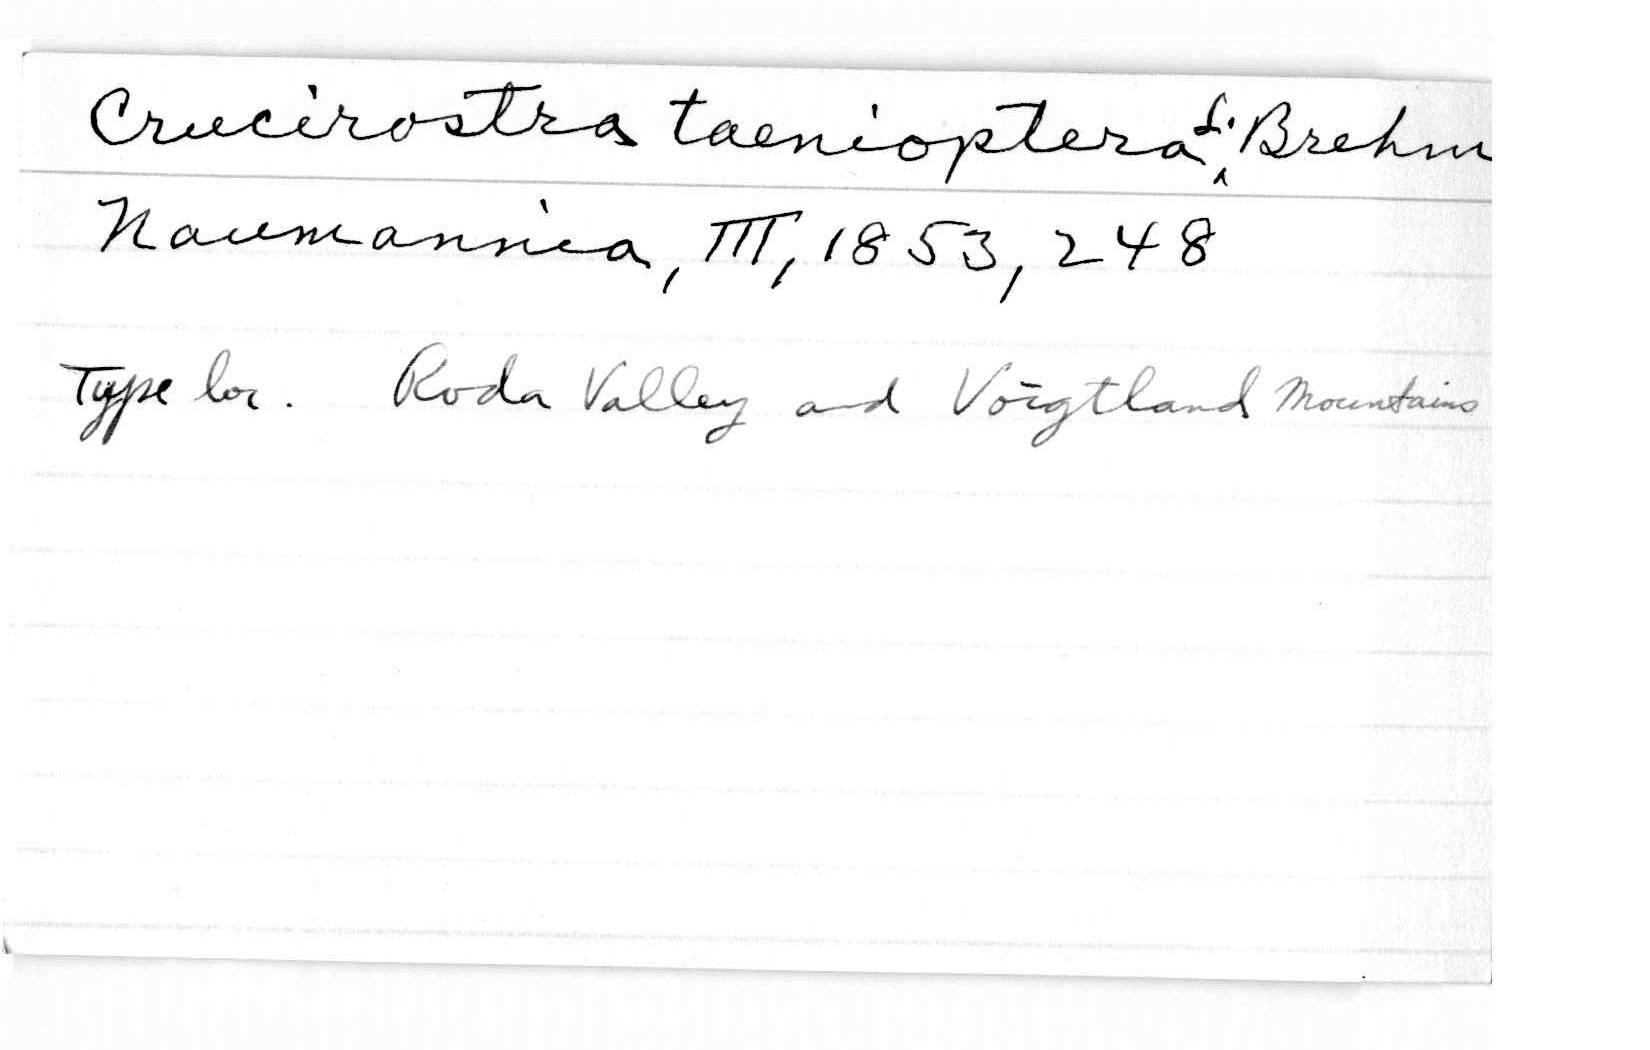 Crucirostra taenioptera L. Brehm
Naumannia, III, 1853, 248
Type loc. Roda Valley and Voigtland Mountains